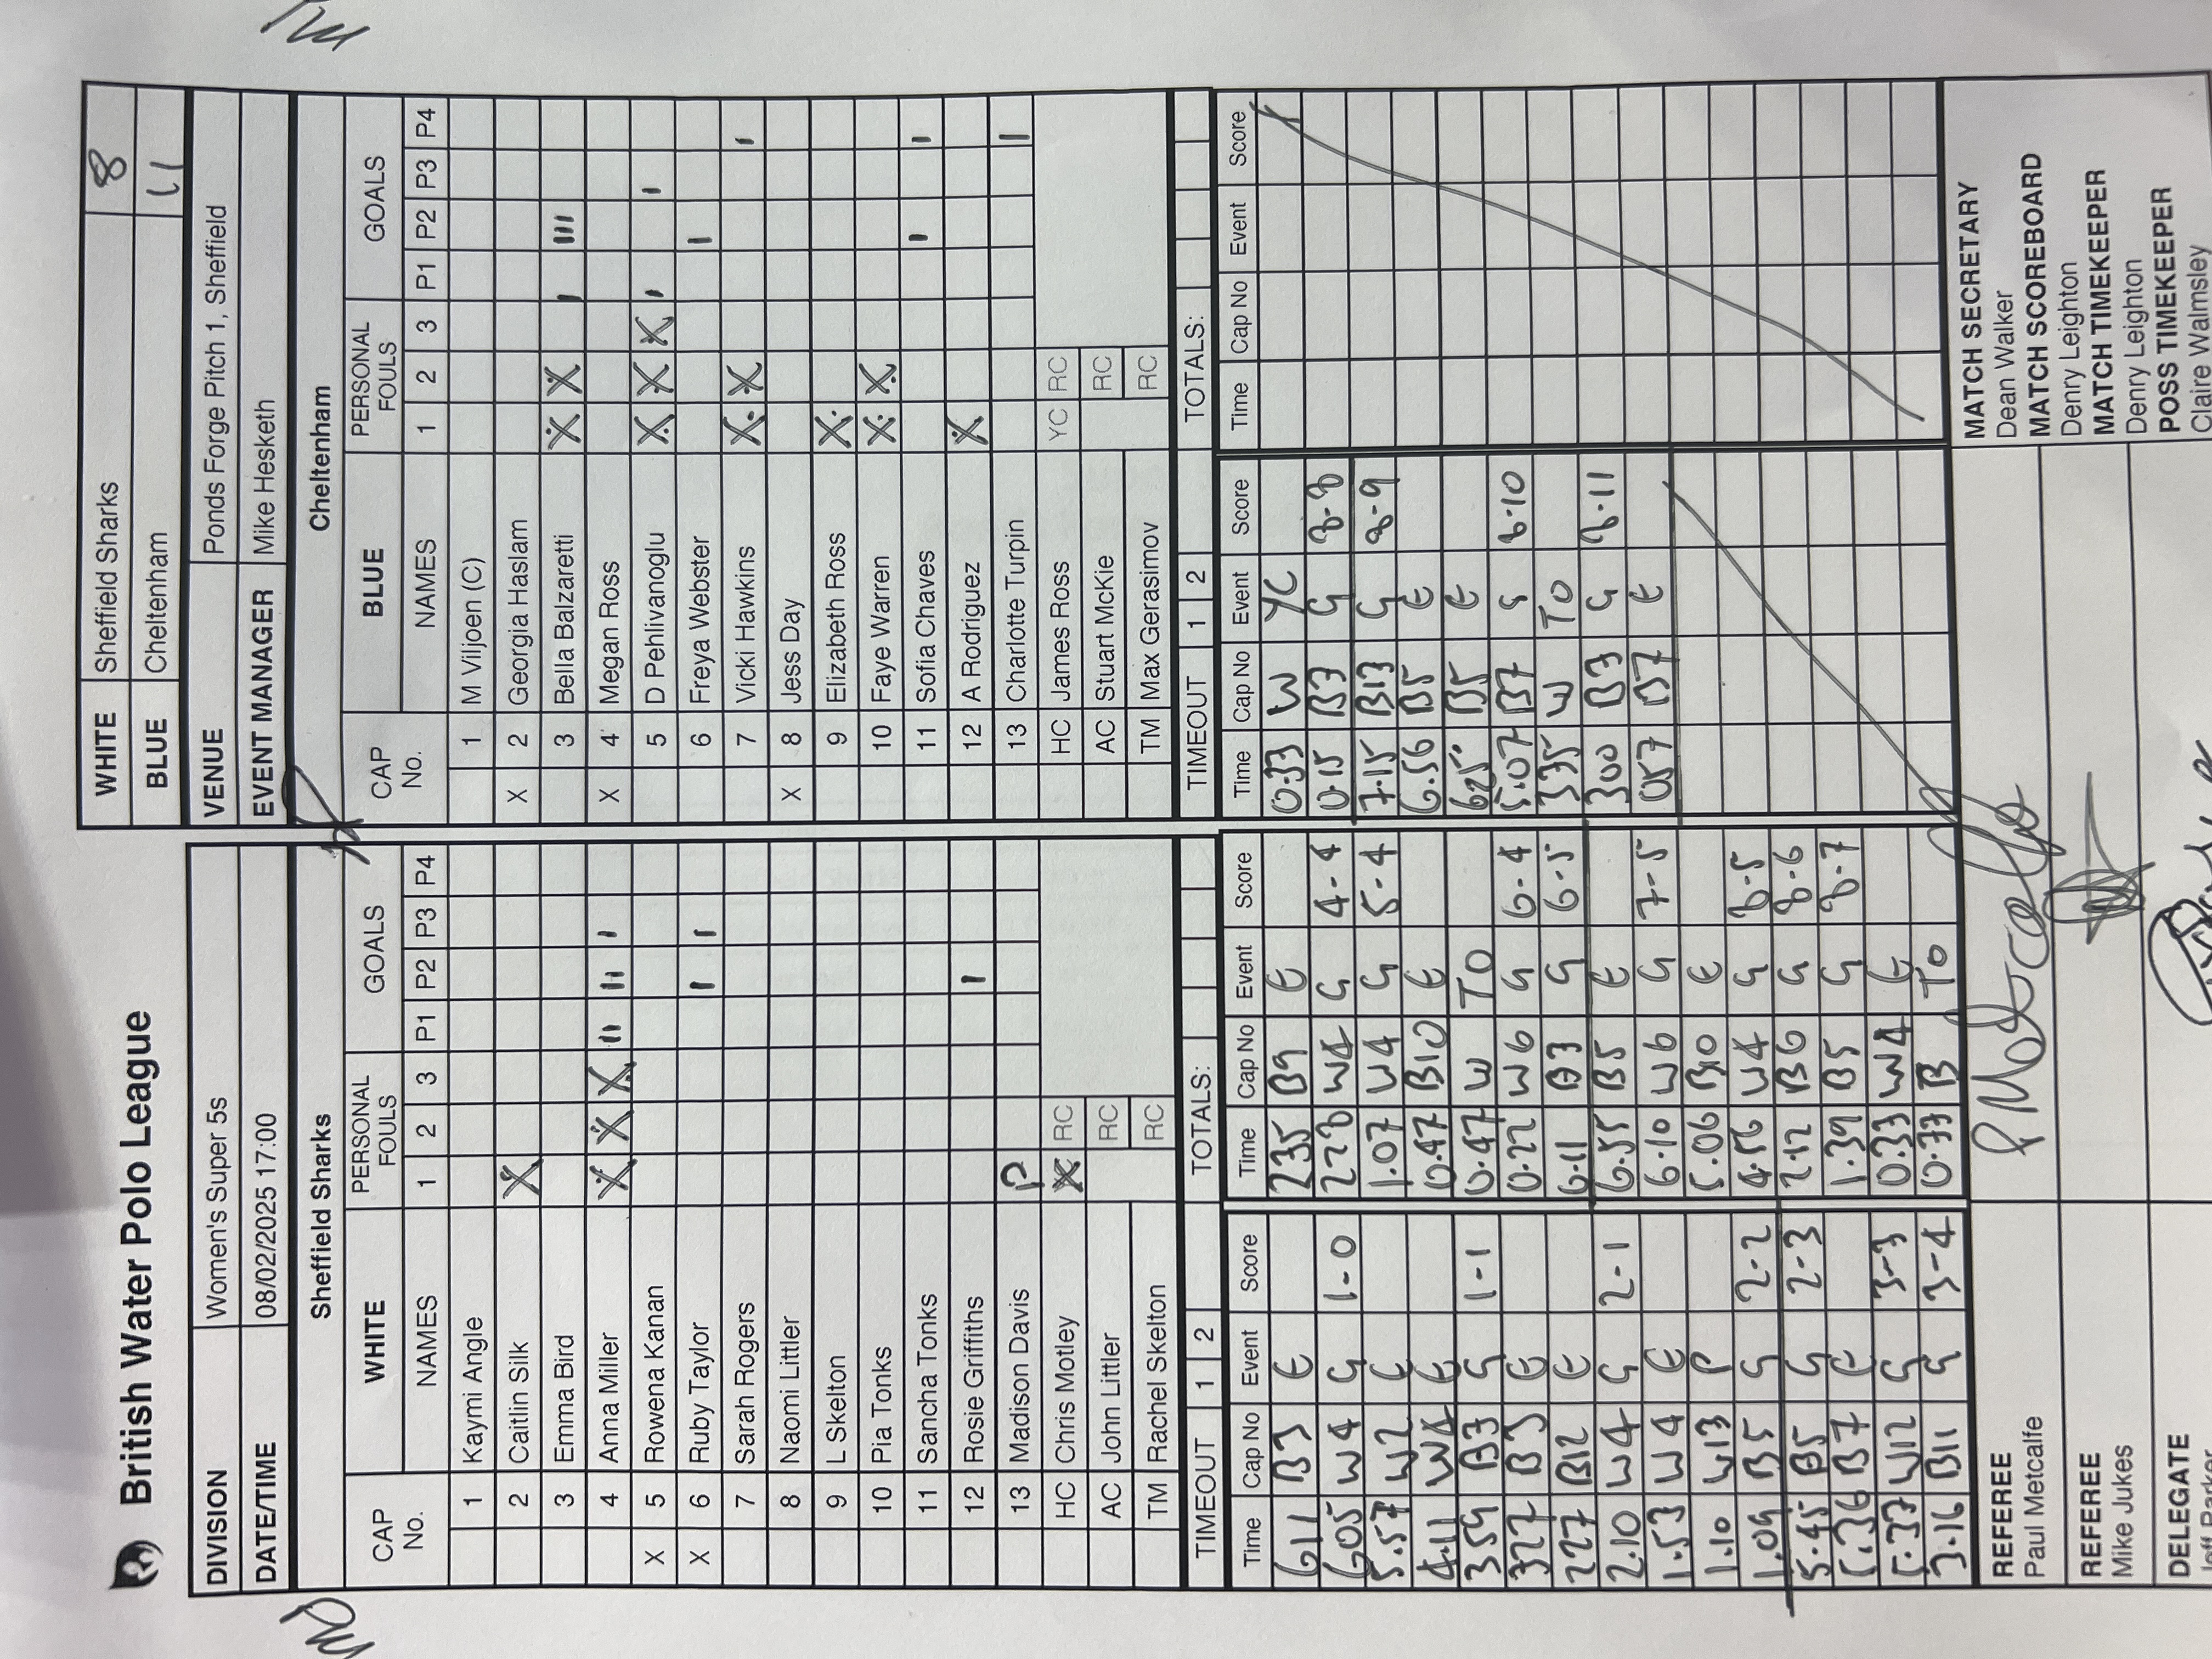 British Water Polo League
WHITE Sheffield Sharks 8
BLUE Cheltenham 11
DIVISION Women's Super 5s
DATE/TIME 08/02/2025 17:00
VENUE Ponds Forge Pitch 1, Sheffield
EVENT MANAGER Mike Hesketh
Sheffield Sharks
CAP No. WHITE NAMES PERSONAL FOULS 1 2 3 GOALS P1 P2 P3 P4
1 Kaymi Angle
2 Caitlin Silk X
3 Emma Bird
4 Anna Miller X X X II II I
X 5 Rowena Kanan
X 6 Ruby Taylor I I
7 Sarah Rogers
8 Naomi Littler
9 L Skelton
10 Pia Tonks
11 Sancha Tonks
12 Rosie Griffiths I
13 Madison Davis P
HC Chris Motley X RC
AC John Littler RC
TM Rachel Skelton RC
TIMEOUT 1 2 TOTALS:
Cheltenham
CAP No. BLUE NAMES PERSONAL FOULS 1 2 3 GOALS P1 P2 P3 P4
1 M Viljoen (C)
X 2 Georgia Haslam
3 Bella Balzaretti X X I III
X 4 Megan Ross
5 D Pehlivanoglu X X X I I
6 Freya Webster I
7 Vicki Hawkins X X I
X 8 Jess Day
9 Elizabeth Ross X
10 Faye Warren X X
11 Sofia Chaves I I
12 A Rodriguez X
13 Charlotte Turpin I
HC James Ross YC RC
AC Stuart McKie RC
TM Max Gerasimov RC
TIMEOUT 1 2 TOTALS:
Time Cap No Event Score
611 B3 E
605 W4 G 1-0
5.57 W2 E
4.11 W4 E
359 B3 G 1-1
322 B3 E
227 B12 E
2.10 W4 G 2-1
1.53 W4 E
1.10 W13 P
1.09 B5 G 2-2
5.45 B5 G 2-3
5.36 B7 E
5.33 W12 G 3-3
3.16 B11 G 3-4
Time Cap No Event Score
235 B9 E
220 W4 G 4-4
1.07 W4 G 5-4
0.47 B10 E
0.47 W TO
0.22 W6 G 6-4
0.11 B3 G 6-5
6.55 B5 E
6.10 W6 G 7-5
5.06 B10 E
4.56 W4 G 8-5
2.12 B6 G 8-6
1.39 B5 G 8-7
0.33 W4 E
0.33 B TO
Time Cap No Event Score
0.33 W YC
0.15 B3 G 8-8
7.15 B13 G 8-9
6.56 B5 E
625 B5 E
5.07 B7 G 8-10
335 W TO
300 G 8-11
057 B7 E
Time Cap No Event Score
REFEREE
Paul Metcalfe
P Metcalfe
REFEREE
Mike Jukes
DELEGATE
MATCH SECRETARY
Dean Walker
MATCH SCOREBOARD
Denry Leighton
MATCH TIMEKEEPER
Denry Leighton
POSS TIMEKEEPER
Claire Walmsley